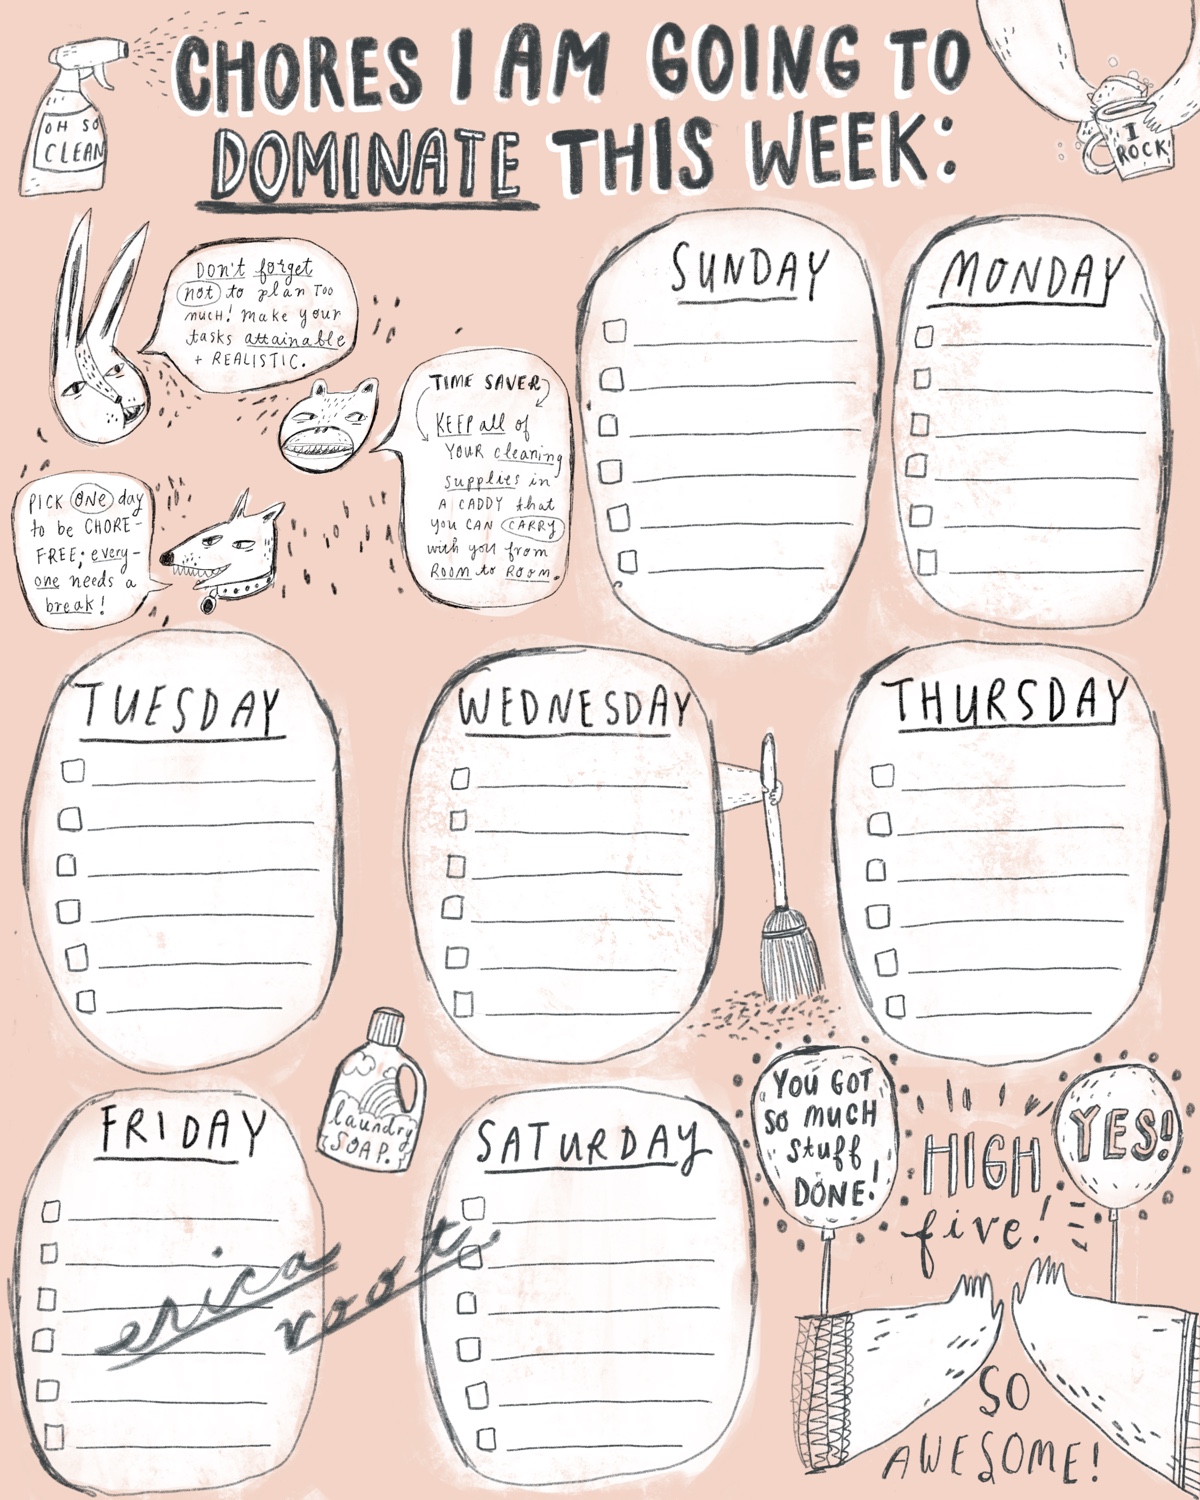 CHORES I AM GOING TO
DOMINATE THIS WEEK:
OH SO
CLEAN
I
ROCK!
Don't forget
not to plan TOO
MUCH! make your
tasks attainable
+ REALISTIC.
TIME SAVER
KEEP all of
YOUR cleaning
supplies in
A CADDY that
you CAN CARRY
with you from
ROOM to ROOM.
PICK ONE day
to be CHORE-
FREE; every-
one needs a
break!
SUNDAY
MONDAY
TUESDAY
WEDNESDAY
THURSDAY
laundry
SOAP.
FRIDAY
SATURDAY
erica
root
YOU GOT
SO MUCH
Stuff
DONE!
HIGH
five!
YES!
SO
AWESOME!